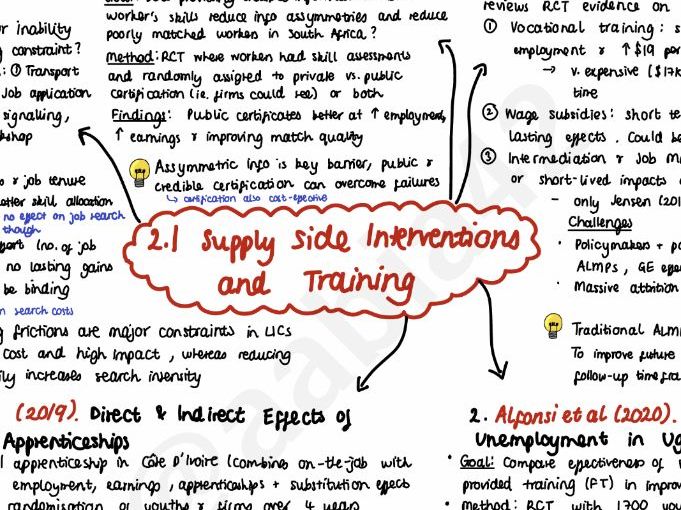 worker's skills reduce info assymmetries and reduce
poorly matched workers in South Africa?
Method: RCT where workers had skill assessments
and randomly assigned to private vs. public
certification (ie. firms could see) or both
Findings: Public certificates better at ↑ employment,
↑ earnings & improving match quality
Assymmetric Info is key barrier, public &
credible certification can overcome failures
↳ certification also cost-effective
r inability
constraint?
: ① Transport
Job application
signalling,
shop
& job tenure
etter skill allocation
no effect on job search
though
port (no. of job
no lasting gains
be binding
n search costs
2.1 Supply side Interventions
and Training
g frictions are major constraints in LICs
cost and high impact, whereas reducing
ily increases search intensity
reviews RCT evidence on
① Vocational training: s
employment & ↑ $19 per
→ v. expensive ($17k
time
② Wage subsidies: short te
lasting effects. Could be
③ Intermediation & Job M
or short-lived impacts
- only Jensen (201
Challenges
• Policymakers + po
ALMPs, GE effe
• Massive attrition
Traditional ALM
To improve future
follow-up timefra
(2019). Direct & Indirect Effects of
Apprenticeships
l apprenticeship in Côte D'Ivoire (combine on-the-job with
employment, earnings, apprenticeships + substitution effect
randomisation of youths & firms over 4 years
2. Alfonsi et al (2020).
Unemployment in Ug
• Goal: Compare effectiveness of
provided training (FT) in improv
• Method: RCT with 1700 you